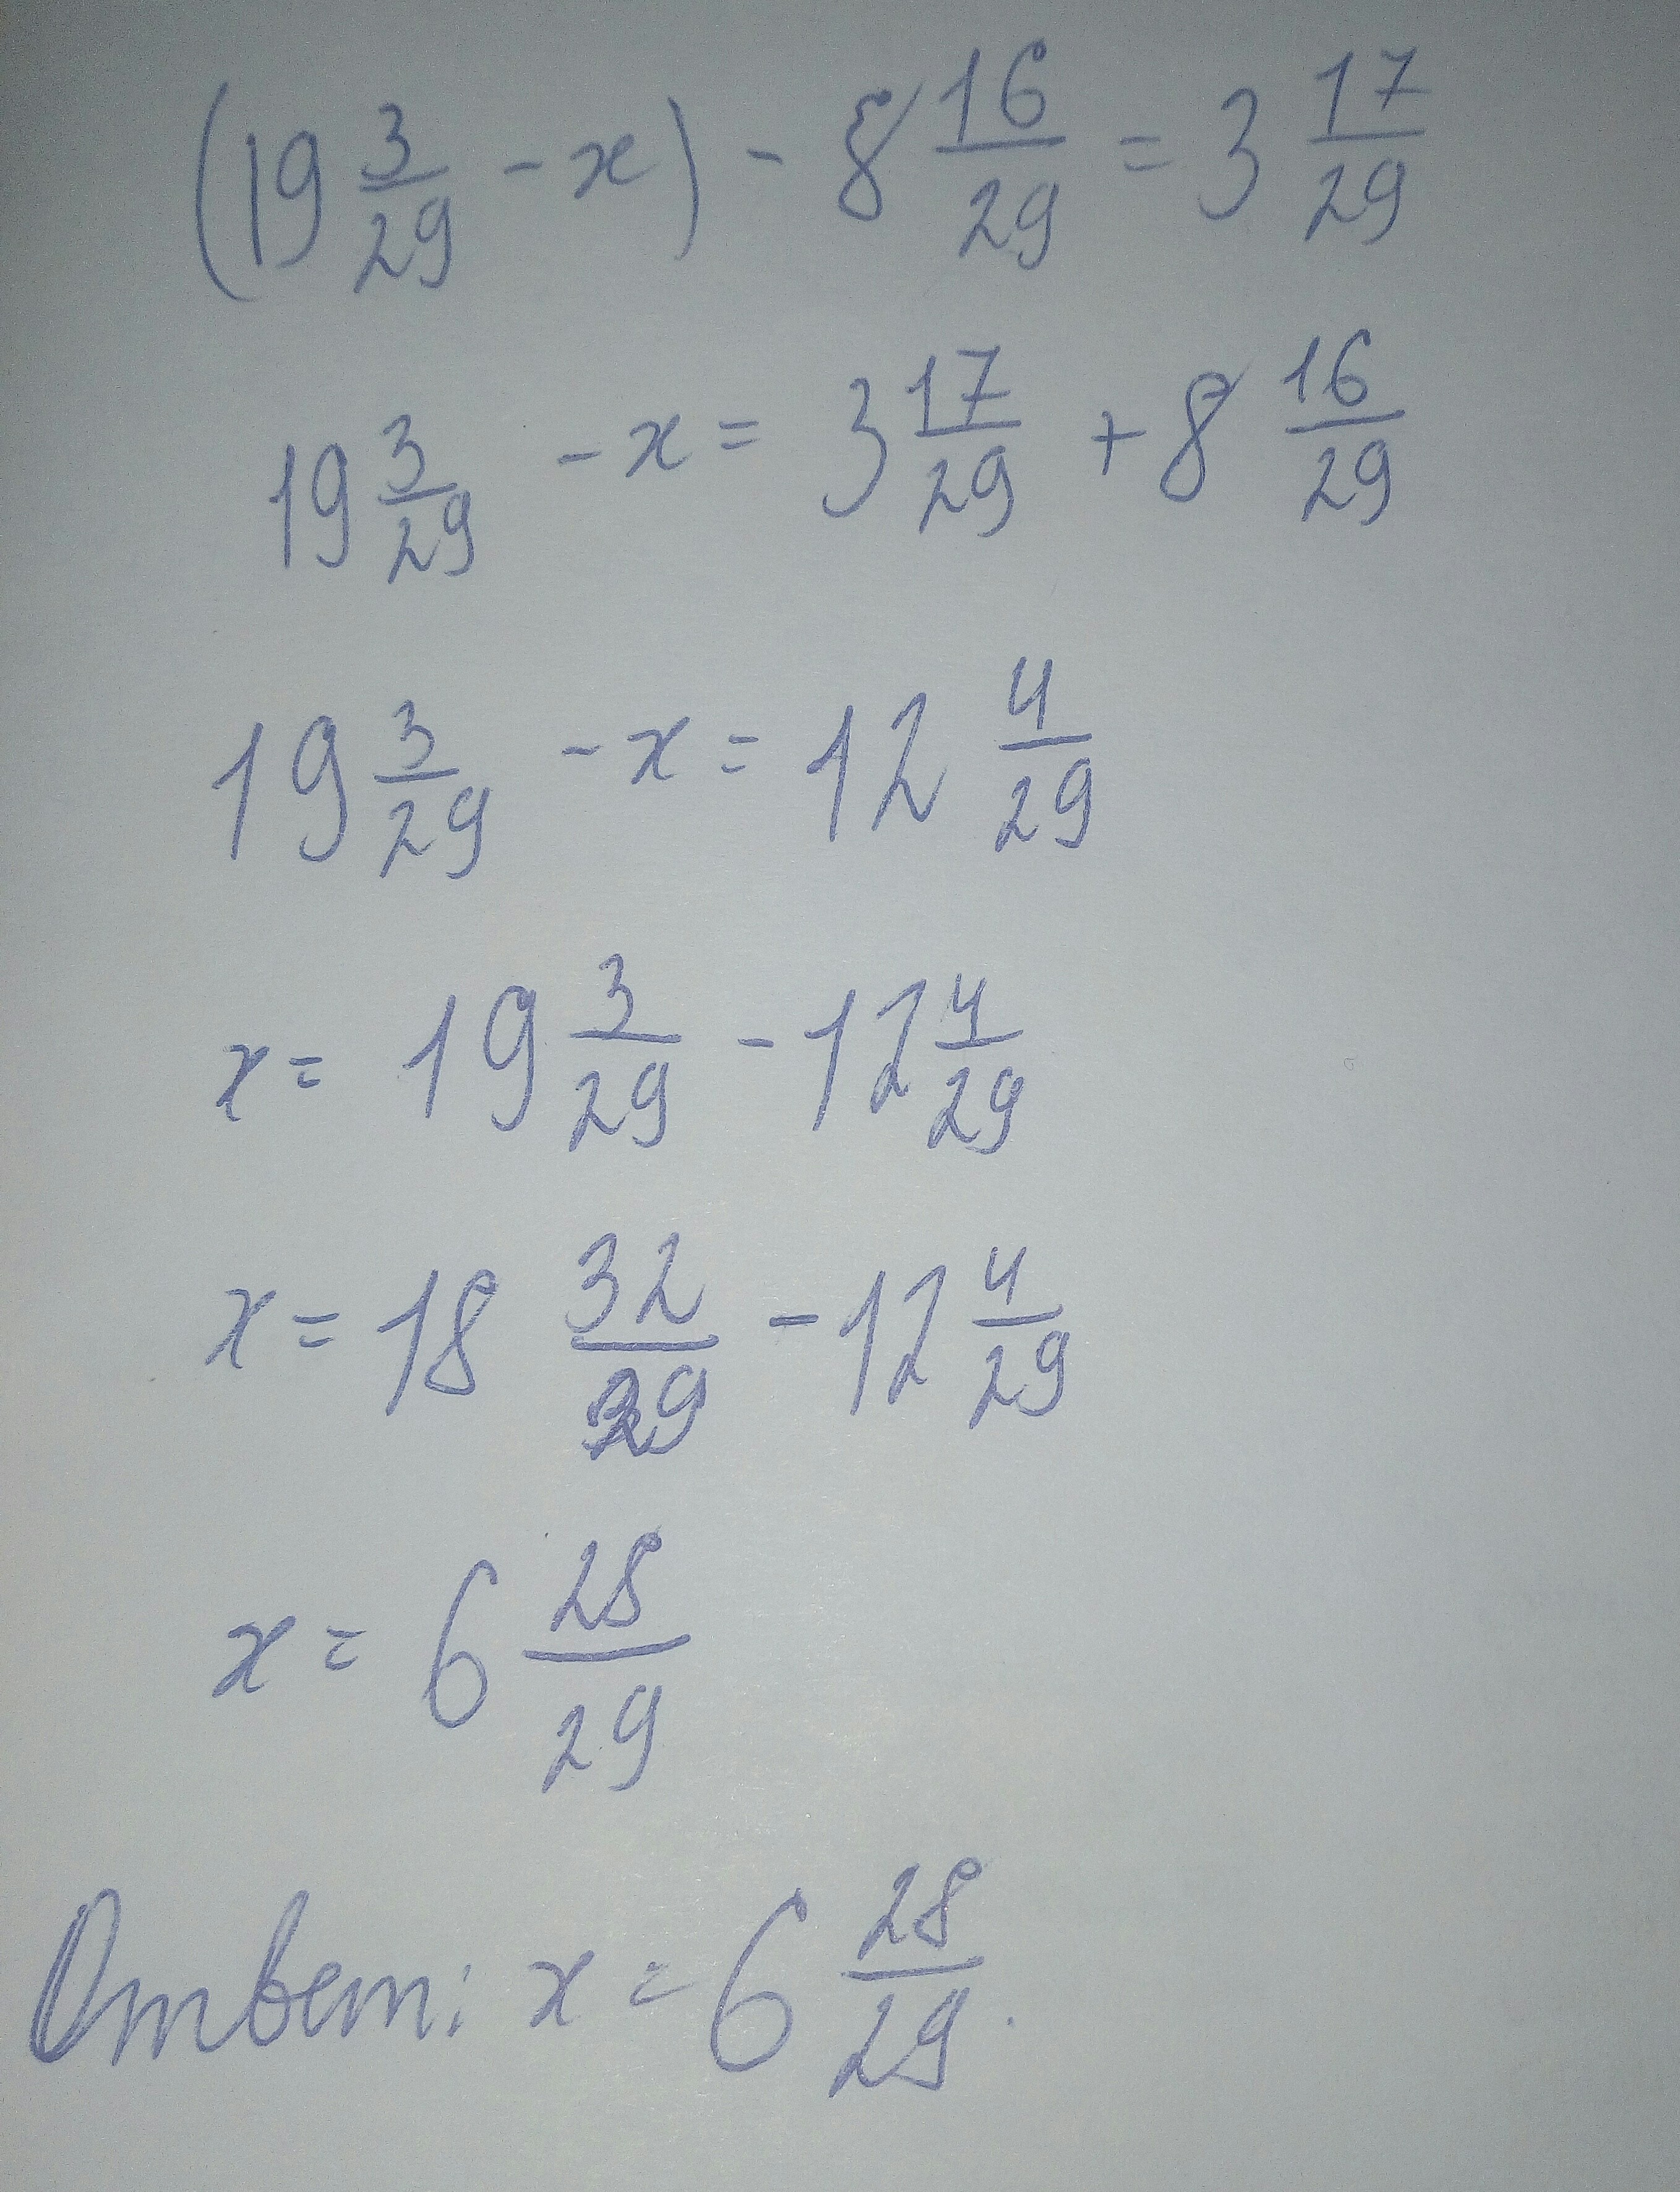 (19 3/29 - x) - 8 16/29 = 3 17/29
19 3/29 - x = 3 17/29 + 8 16/29
19 3/29 - x = 12 4/29
x = 19 3/29 - 12 4/29
x = 18 32/29 - 12 4/29
x = 6 28/29
Ответ: x = 6 28/29.